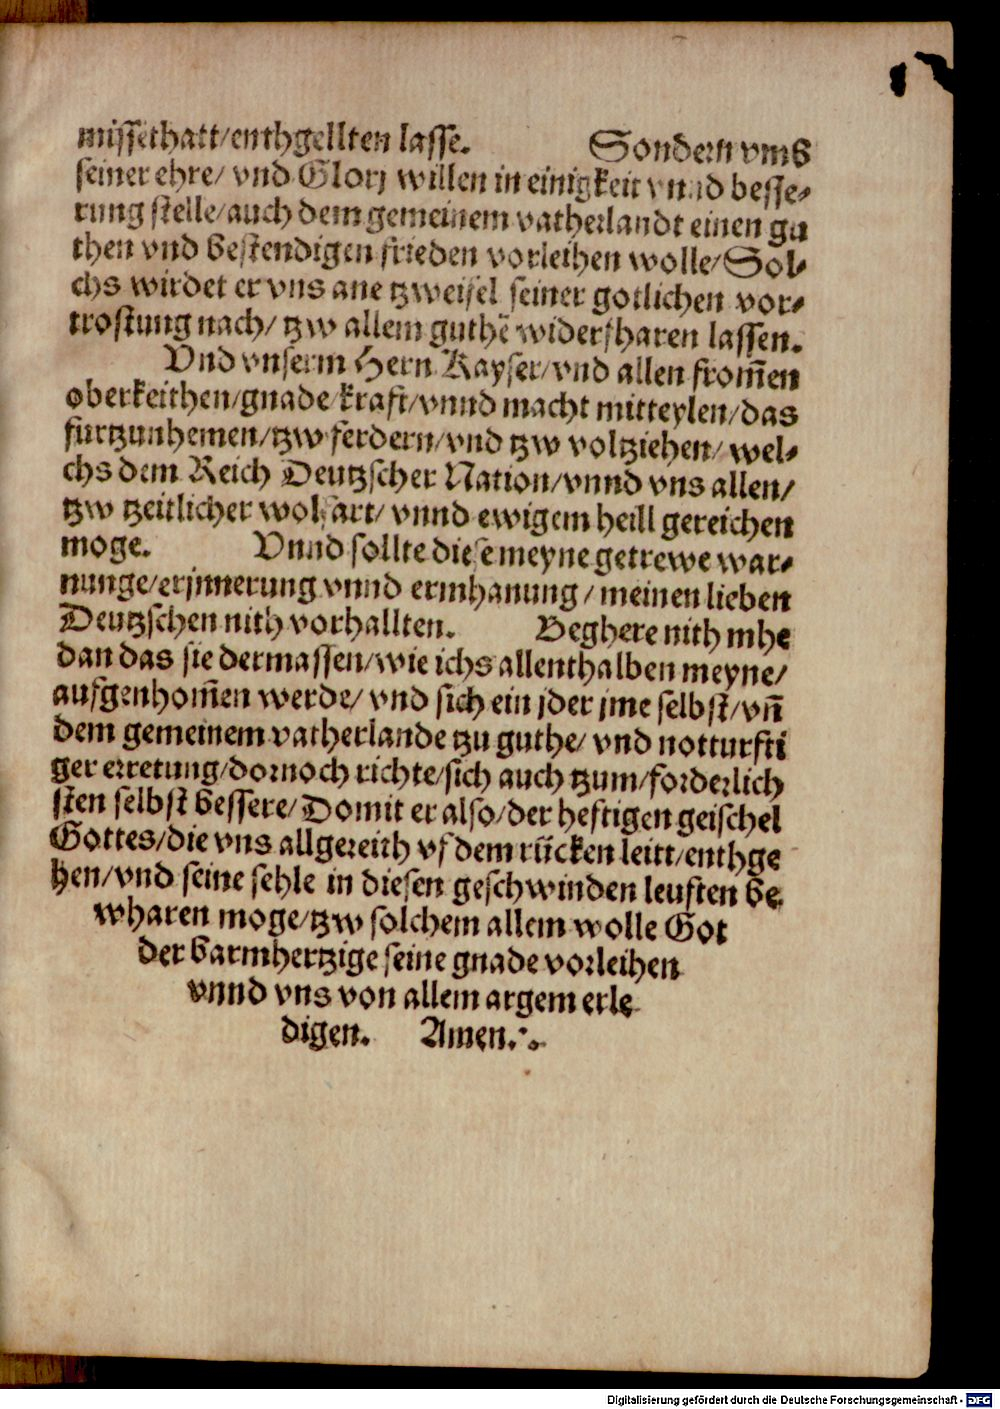 missethatt/enthgellten lasse. Sondern vmb
seiner ehre/ vnd Glorj willen in einigkeit vnnd besse-
rung stelle/auch dem gemeinem vatherlandt einen gu
then vnd bestendigen frieden vorleihen wolle/Sol-
chs wirdet er vns ane tzweifel seiner gotlichen vor-
trostung nach/ tzw allem guthē widerfharen lassen.
Vnd vnserm Hern Kayser/vnd allen from̄en
oberkeithen/gnade/kraft/vnnd macht mitteylen/das
furtzunhemen/tzw ferdern/vnd tzw voltziehen/ wel-
chs dem Reich Deutzscher Nation/vnnd vns allen/
tzw tzeitlicher wolfart/ vnnd ewigem heill gereichen
moge. Vnnd sollte diese meyne getrewe war-
nunge/erjnnerung vnnd ermhanung/ meinen lieben
Deutzschen nith vorhallten. Beghere nith mhe
dan das sie dermassen/wie ichs allenthalben meyne/
aufgenhom̄en werde/ vnd sich ein jder jme selbst/vn̄
dem gemeinem vatherlande tzu guthe/ vnd notturfti
ger erretung/dornoch richte/sich auch tzum/forderlich
sten selbst bessere/Domit er also/der heftigen geischel
Gottes/die vns allgereith vf dem rücken leitt/enthge
hen/vnd seine sehle in diesen geschwinden leuften be
wharen moge/tzw solchem allem wolle Got
der barmhertzige seine gnade vorleihen
vnnd vns von allem argem erle
digen. Amen.
Digitalisierung gefördert durch die Deutsche Forschungsgemeinschaft - DFG